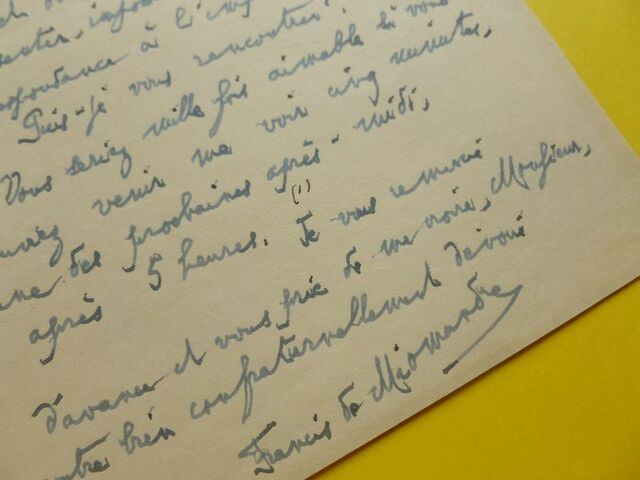 correspondance à l'imp
Puis-je vous rencontrer?
Vous seriez mille fois aimable si vous
pouviez venir me voir cinq minutes,
une des prochaines après-midi,
après 5 heures. (1) Je vous remercie
d'avance et vous prie de me croire, Monsieur,
votre bien confraternellement dévoué
Francis de Miomandre